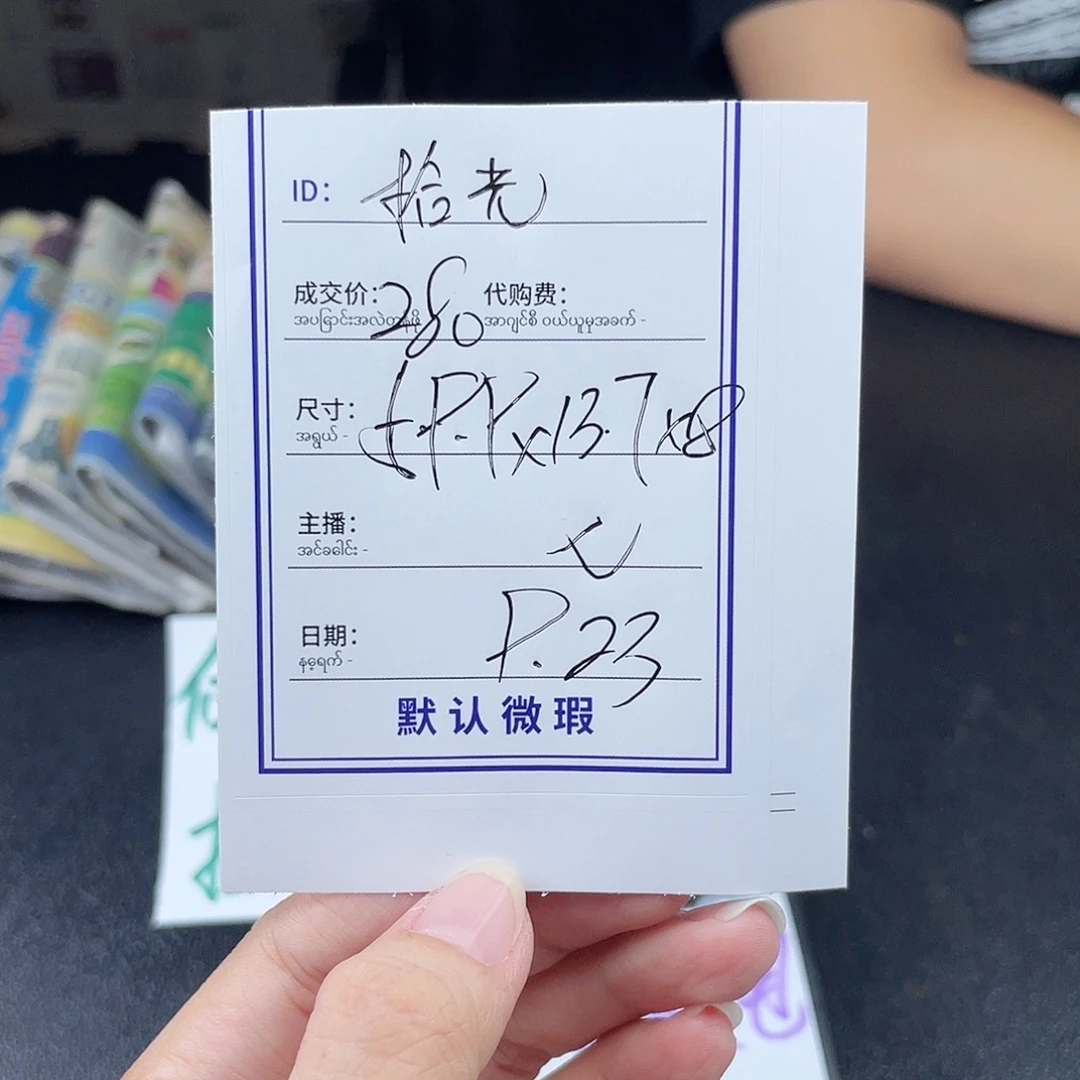 ID: 拾光
成交价: 280 代购费:
အပြောင်းအလဲတန်ဖိုး အာဂျင်စီ ဝယ်ယူမှုအခက် -
尺寸: x13.7x8
အရွယ် -
主播: 七
အင်ခေါင်း -
日期: 23
နေ့ရက် -
默认微瑕